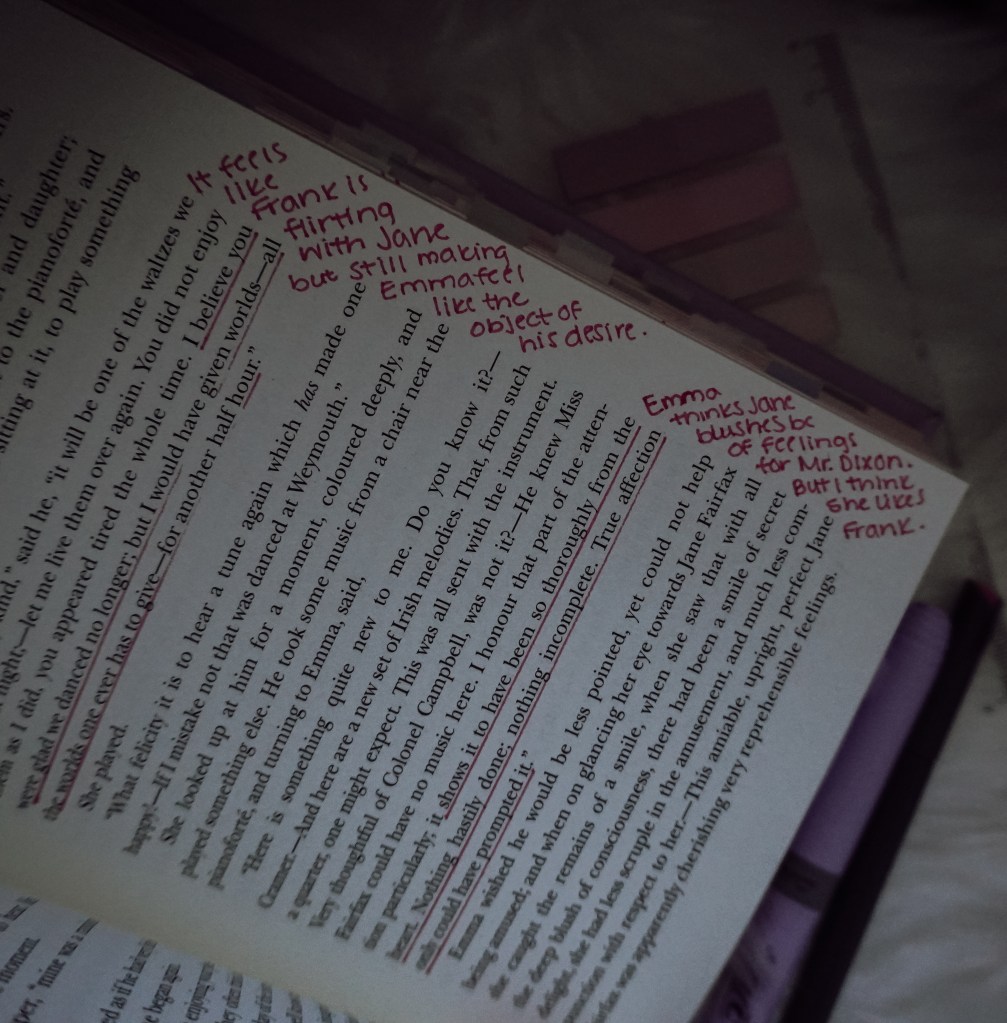 and daughter;
to the pianoforté, and
sitting at it, to play something
said he, "it will be one of the waltzes we
night;—let me live them over again. You did not enjoy
them as I did, you appeared tired the whole time. I believe you
were glad we danced no longer; but I would have given worlds—all
the worlds one ever has to give—for another half hour."
She played.
"What felicity it is to hear a tune again which has made one
happy!—If I mistake not that was danced at Weymouth."
She looked up at him for a moment, coloured deeply, and
played something else. He took some music from a chair near the
pianoforté, and turning to Emma, said,
"Here is something quite new to me. Do you know it?—
Cramer.—And here are a new set of Irish melodies. That, from such
a quarter, one might expect. This was all sent with the instrument.
Very thoughtful of Colonel Campbell, was not it?—He knew Miss
Fairfax could have no music here. I honour that part of the atten-
tion particularly; it shows it to have been so thoroughly from the
heart. Nothing hastily done; nothing incomplete. True affection
only could have prompted it."
Emma wished he would be less pointed, yet could not help
being amused; and when on glancing her eye towards Jane Fairfax
she caught the remains of a smile, when she saw that with all
the deep blush of consciousness, there had been a smile of secret
delight, she had less scruple in the amusement, and much less com-
punction with respect to her.—This amiable, upright, perfect Jane
Fairfax was apparently cherishing very reprehensible feelings.
It feels
like
Frank is
flirting
with Jane
but still making
Emma feel
like the
object of
his desire.
Emma
thinks Jane
blushes bc
of feelings
for Mr. Dixon.
But I think
she likes
Frank.
moment.
"mine was a